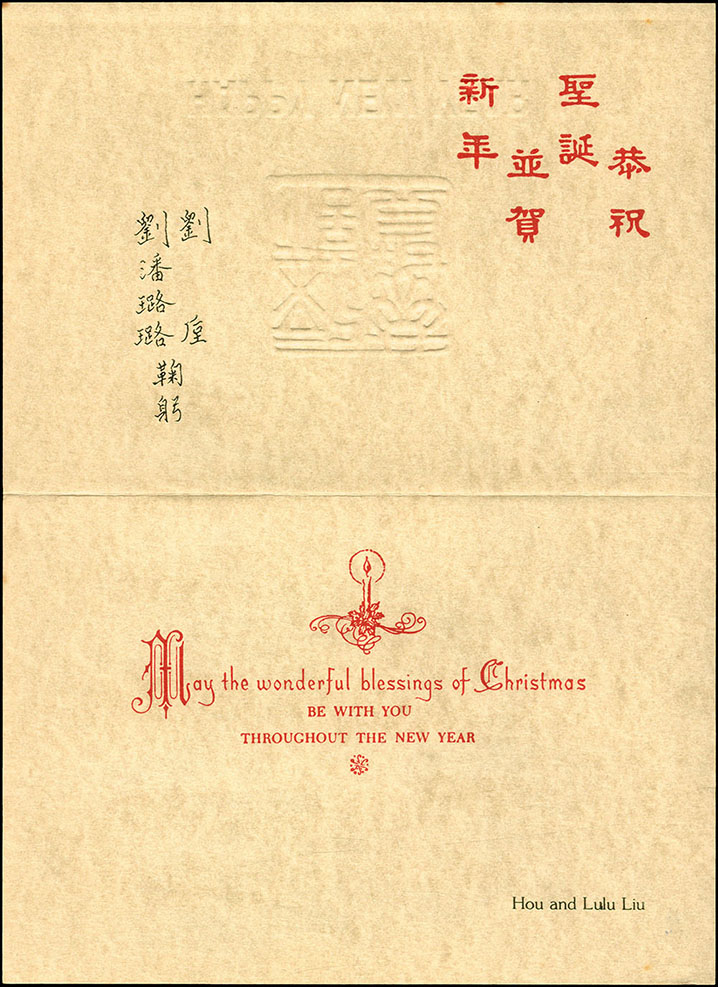 恭祝
聖誕
並賀
新年
劉 垕
劉潘璐璐
鞠躬
May the wonderful blessings of Christmas
BE WITH YOU
THROUGHOUT THE NEW YEAR
Hou and Lulu Liu